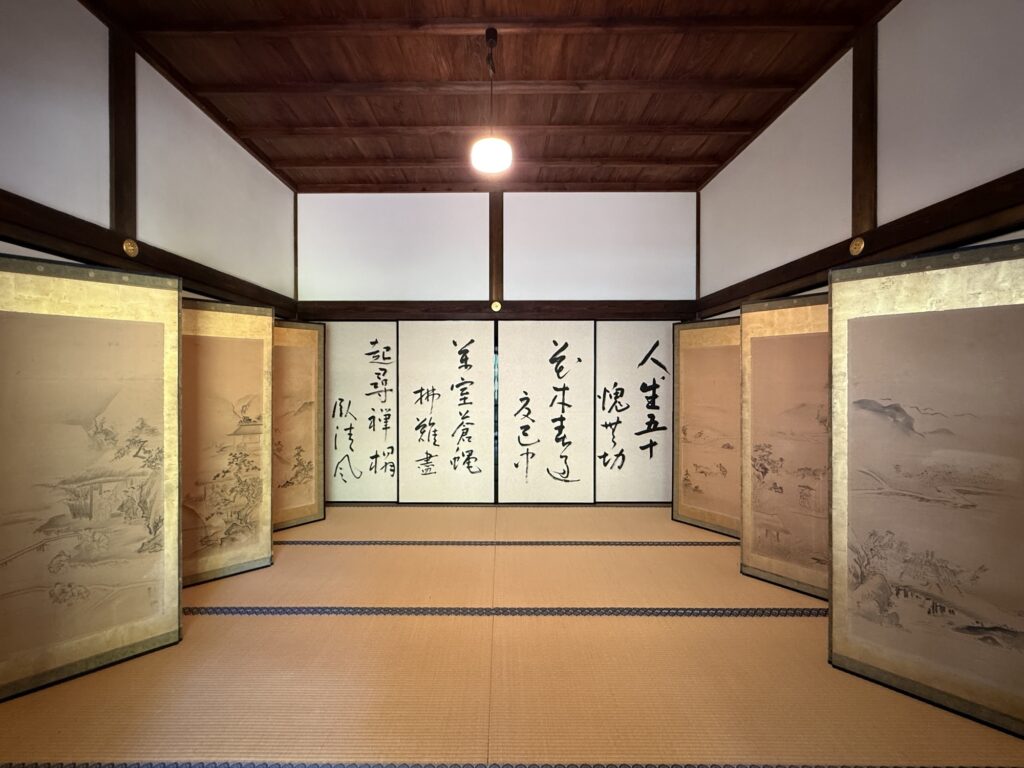 人生五十
愧無功
花木春過
夏已中
満室蒼蝿
拂難盡
起尋禅榻
臥清風